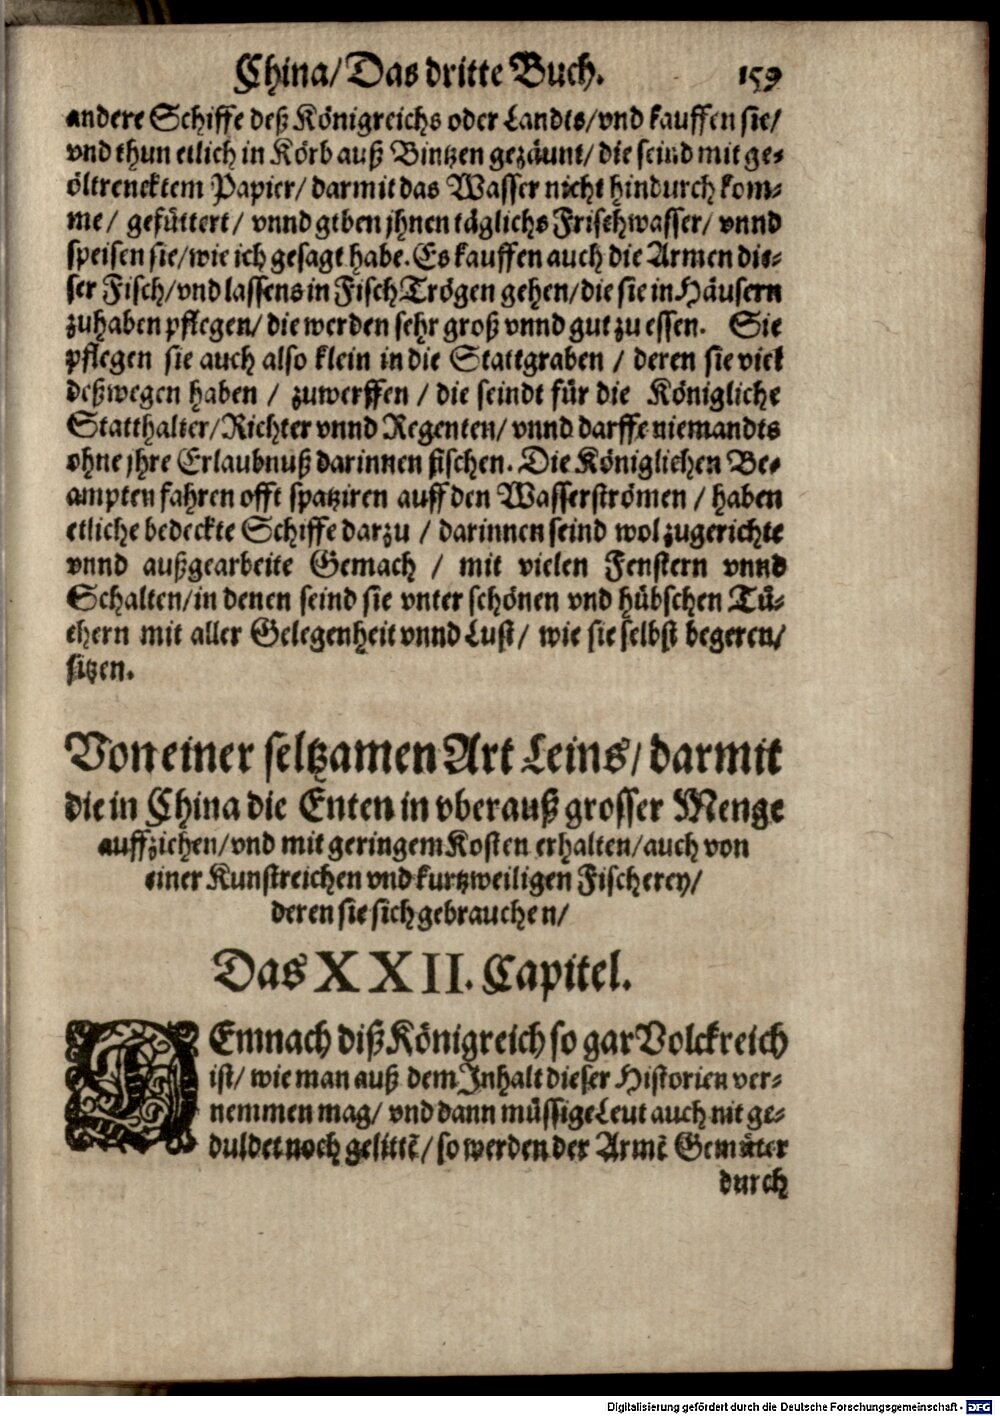 China/ Das dritte Buch. 159
andere Schiffe deß Königreichs oder Landts/ vnd kauffen sie/
vnd thun etlich in Körb auß Bintzen gezäunt/ die seind mit ge-
öltrencktem Papier/ darmit das Wasser nicht hindurch kom-
me/ gefüttert/ vnnd geben jhnen täglichs Frischwasser/ vnnd
speisen sie/ wie ich gesagt habe. Es kauffen auch die Armen die-
ser Fisch/ vnd lassens in Fisch Trögen gehen/ die sie in Häusern
zuhaben pflegen/ die werden sehr groß vnnd gut zu essen. Sie
pflegen sie auch also klein in die Stattgraben / deren sie viel
deßwegen haben / zuwerffen / die seindt für die Königliche
Statthalter/ Richter vnnd Regenten/ vnnd darffe niemandts
ohne jhre Erlaubnuß darinnen fischen. Die Königlichen Be-
ampten fahren offt spatziren auff den Wasserströmen / haben
etliche bedeckte Schiffe darzu / darinnen seind wol zugerichte
vnnd außgearbeite Gemach / mit vielen Fenstern vnnd
Schalten/ in denen seind sie vnter schönen vnd hübschen Tü-
chern mit aller Gelegenheit vnnd Lust/ wie sie selbst begeren/
sitzen.
Von einer seltzamen Art Leins/ darmit
die in China die Enten in vberauß grosser Menge
auffziehen/ vnd mit geringem Kosten erhalten/ auch von
einer Kunstreichen vnd kurtzweiligen Fischerey/
deren sie sich gebrauchen/
Das XXII. Capitel.
DEmnach diß Königreich so gar Volckreich
ist/ wie man auß dem Inhalt dieser Historien ver-
nemmen mag/ vnd dann müssige Leut auch nit ge-
duldet noch gelittē/ so werden der Armē Gemüter
durch
Digitalisierung gefördert durch die Deutsche Forschungsgemeinschaft - DFG